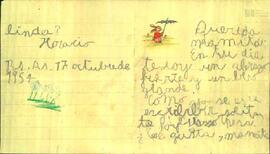 linda?
Horacio
Bs. As. 17 octubre de
1954
Querida
mamita:
En tu día
te doy un abrazo
fuerte y un beso
grande.
Como yo ya sé
escribir
te
¿te gusta, mamita